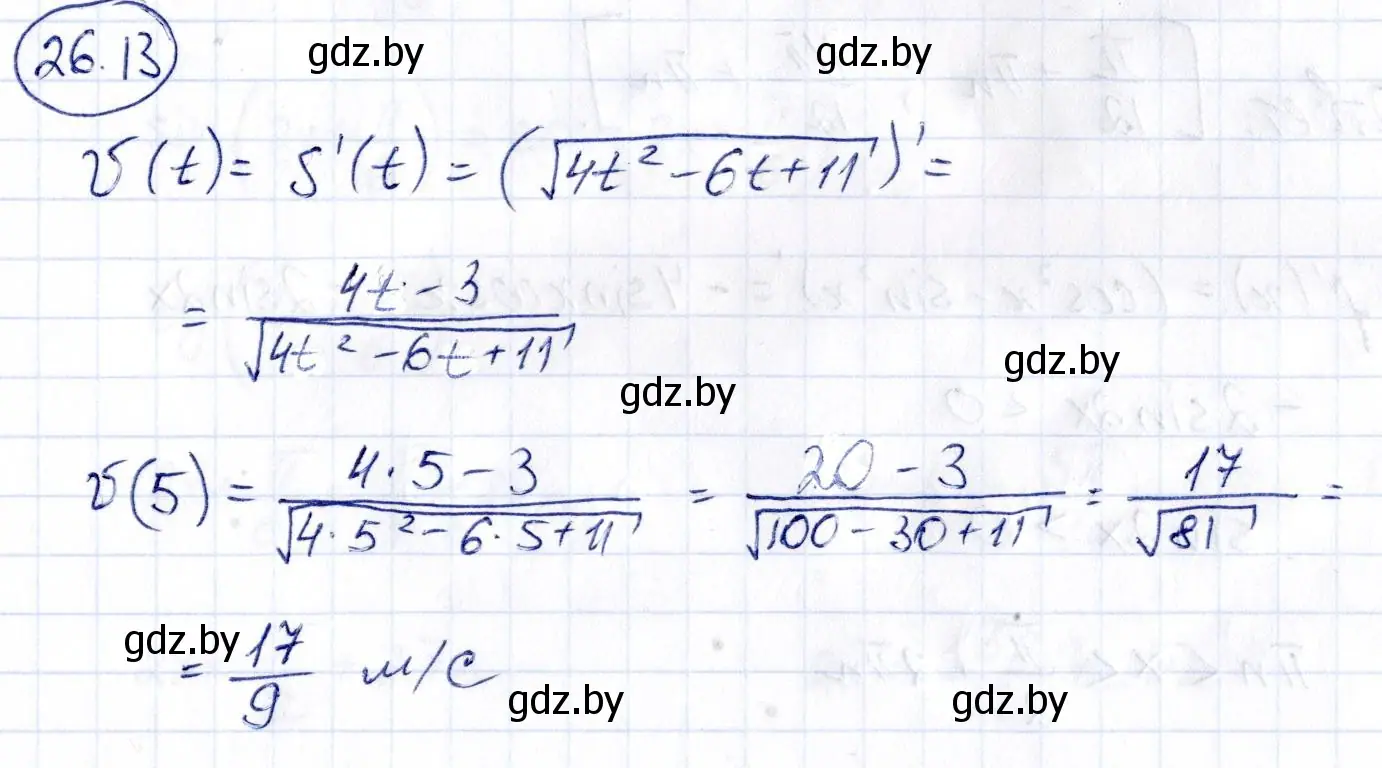 26.13 gdz.by gdz.by
v(t) = S'(t) = (√(4t² - 6t + 11))' =
= (4t - 3)/√(4t² - 6t + 11) gdz.by
gdz.by
v(5) = (4·5 - 3)/√(4·5² - 6·5 + 11) = (20 - 3)/√(100 - 30 + 11) = 17/√81 =
gdz.by
= 17/9 м/с gdz.by gdz.by